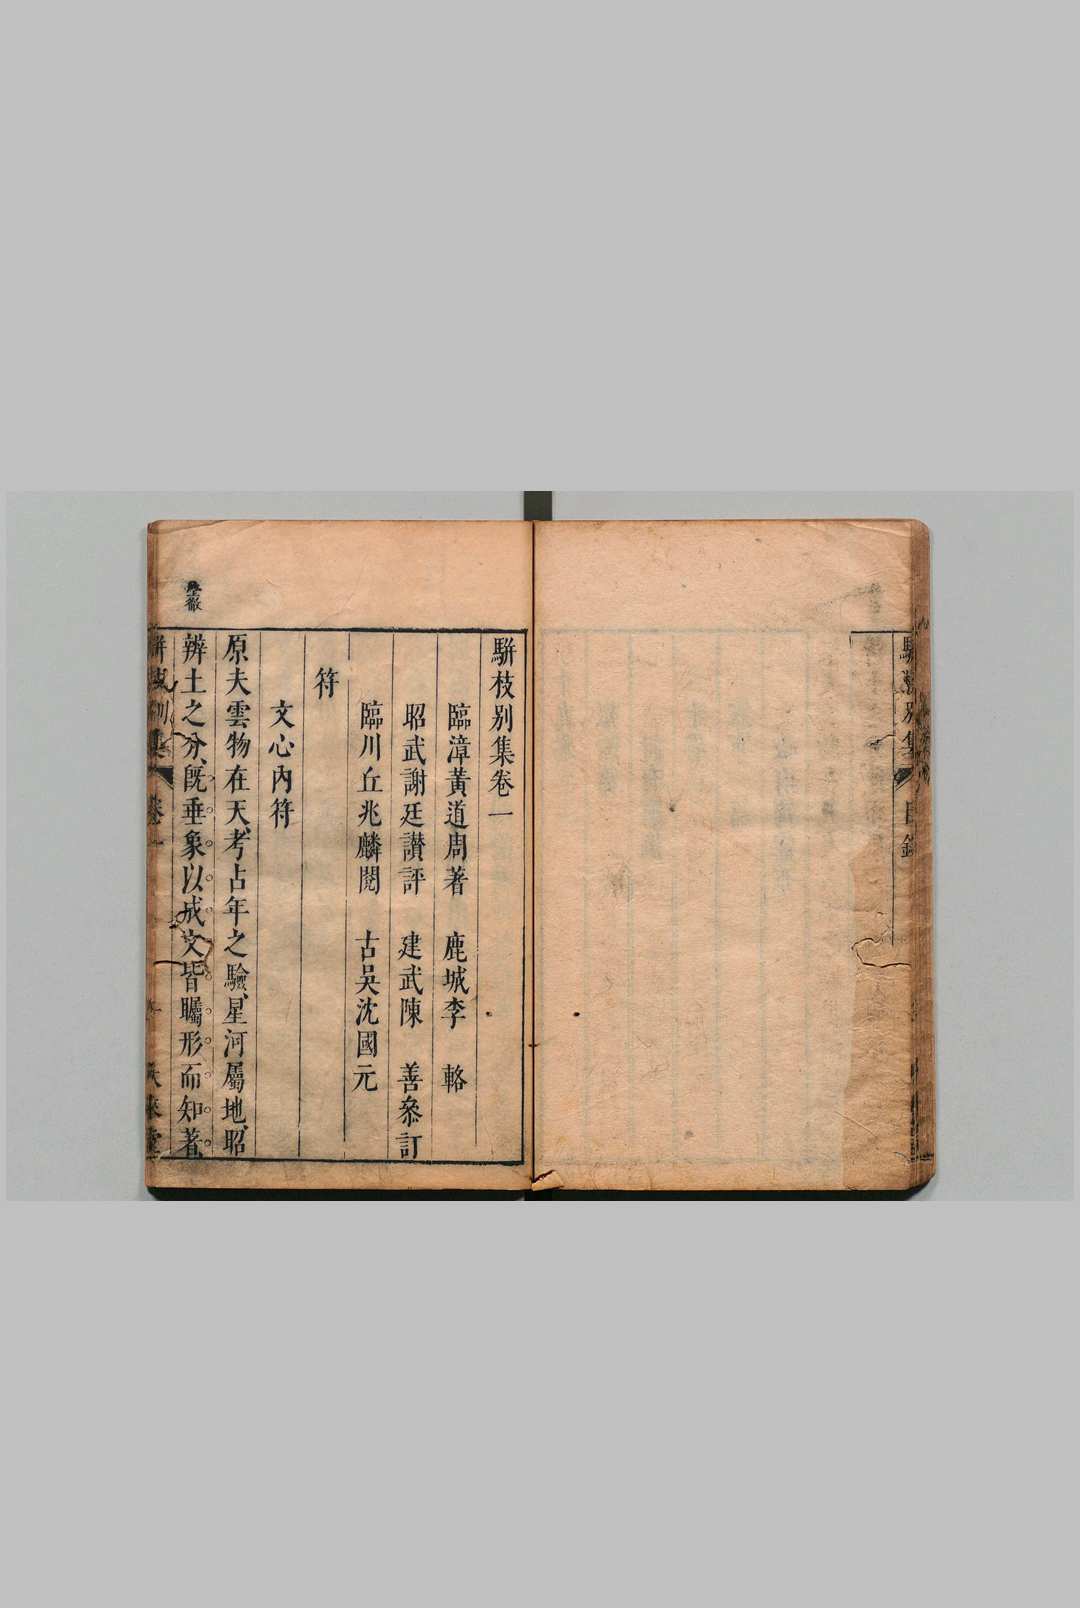 駢枝别集 目錄
駢枝别集卷一
臨漳黃道周著 鹿城李 輅
昭武謝廷讃評 建武陳 善叅訂
臨川丘兆麟閱 古吳沈國元
符
文心內符
原夫雲物在天、考占年之驗、星河屬地、昭
辨土之分、旣垂象以成文、皆矚形而知著、
瑩徹
駢枝别集 卷一